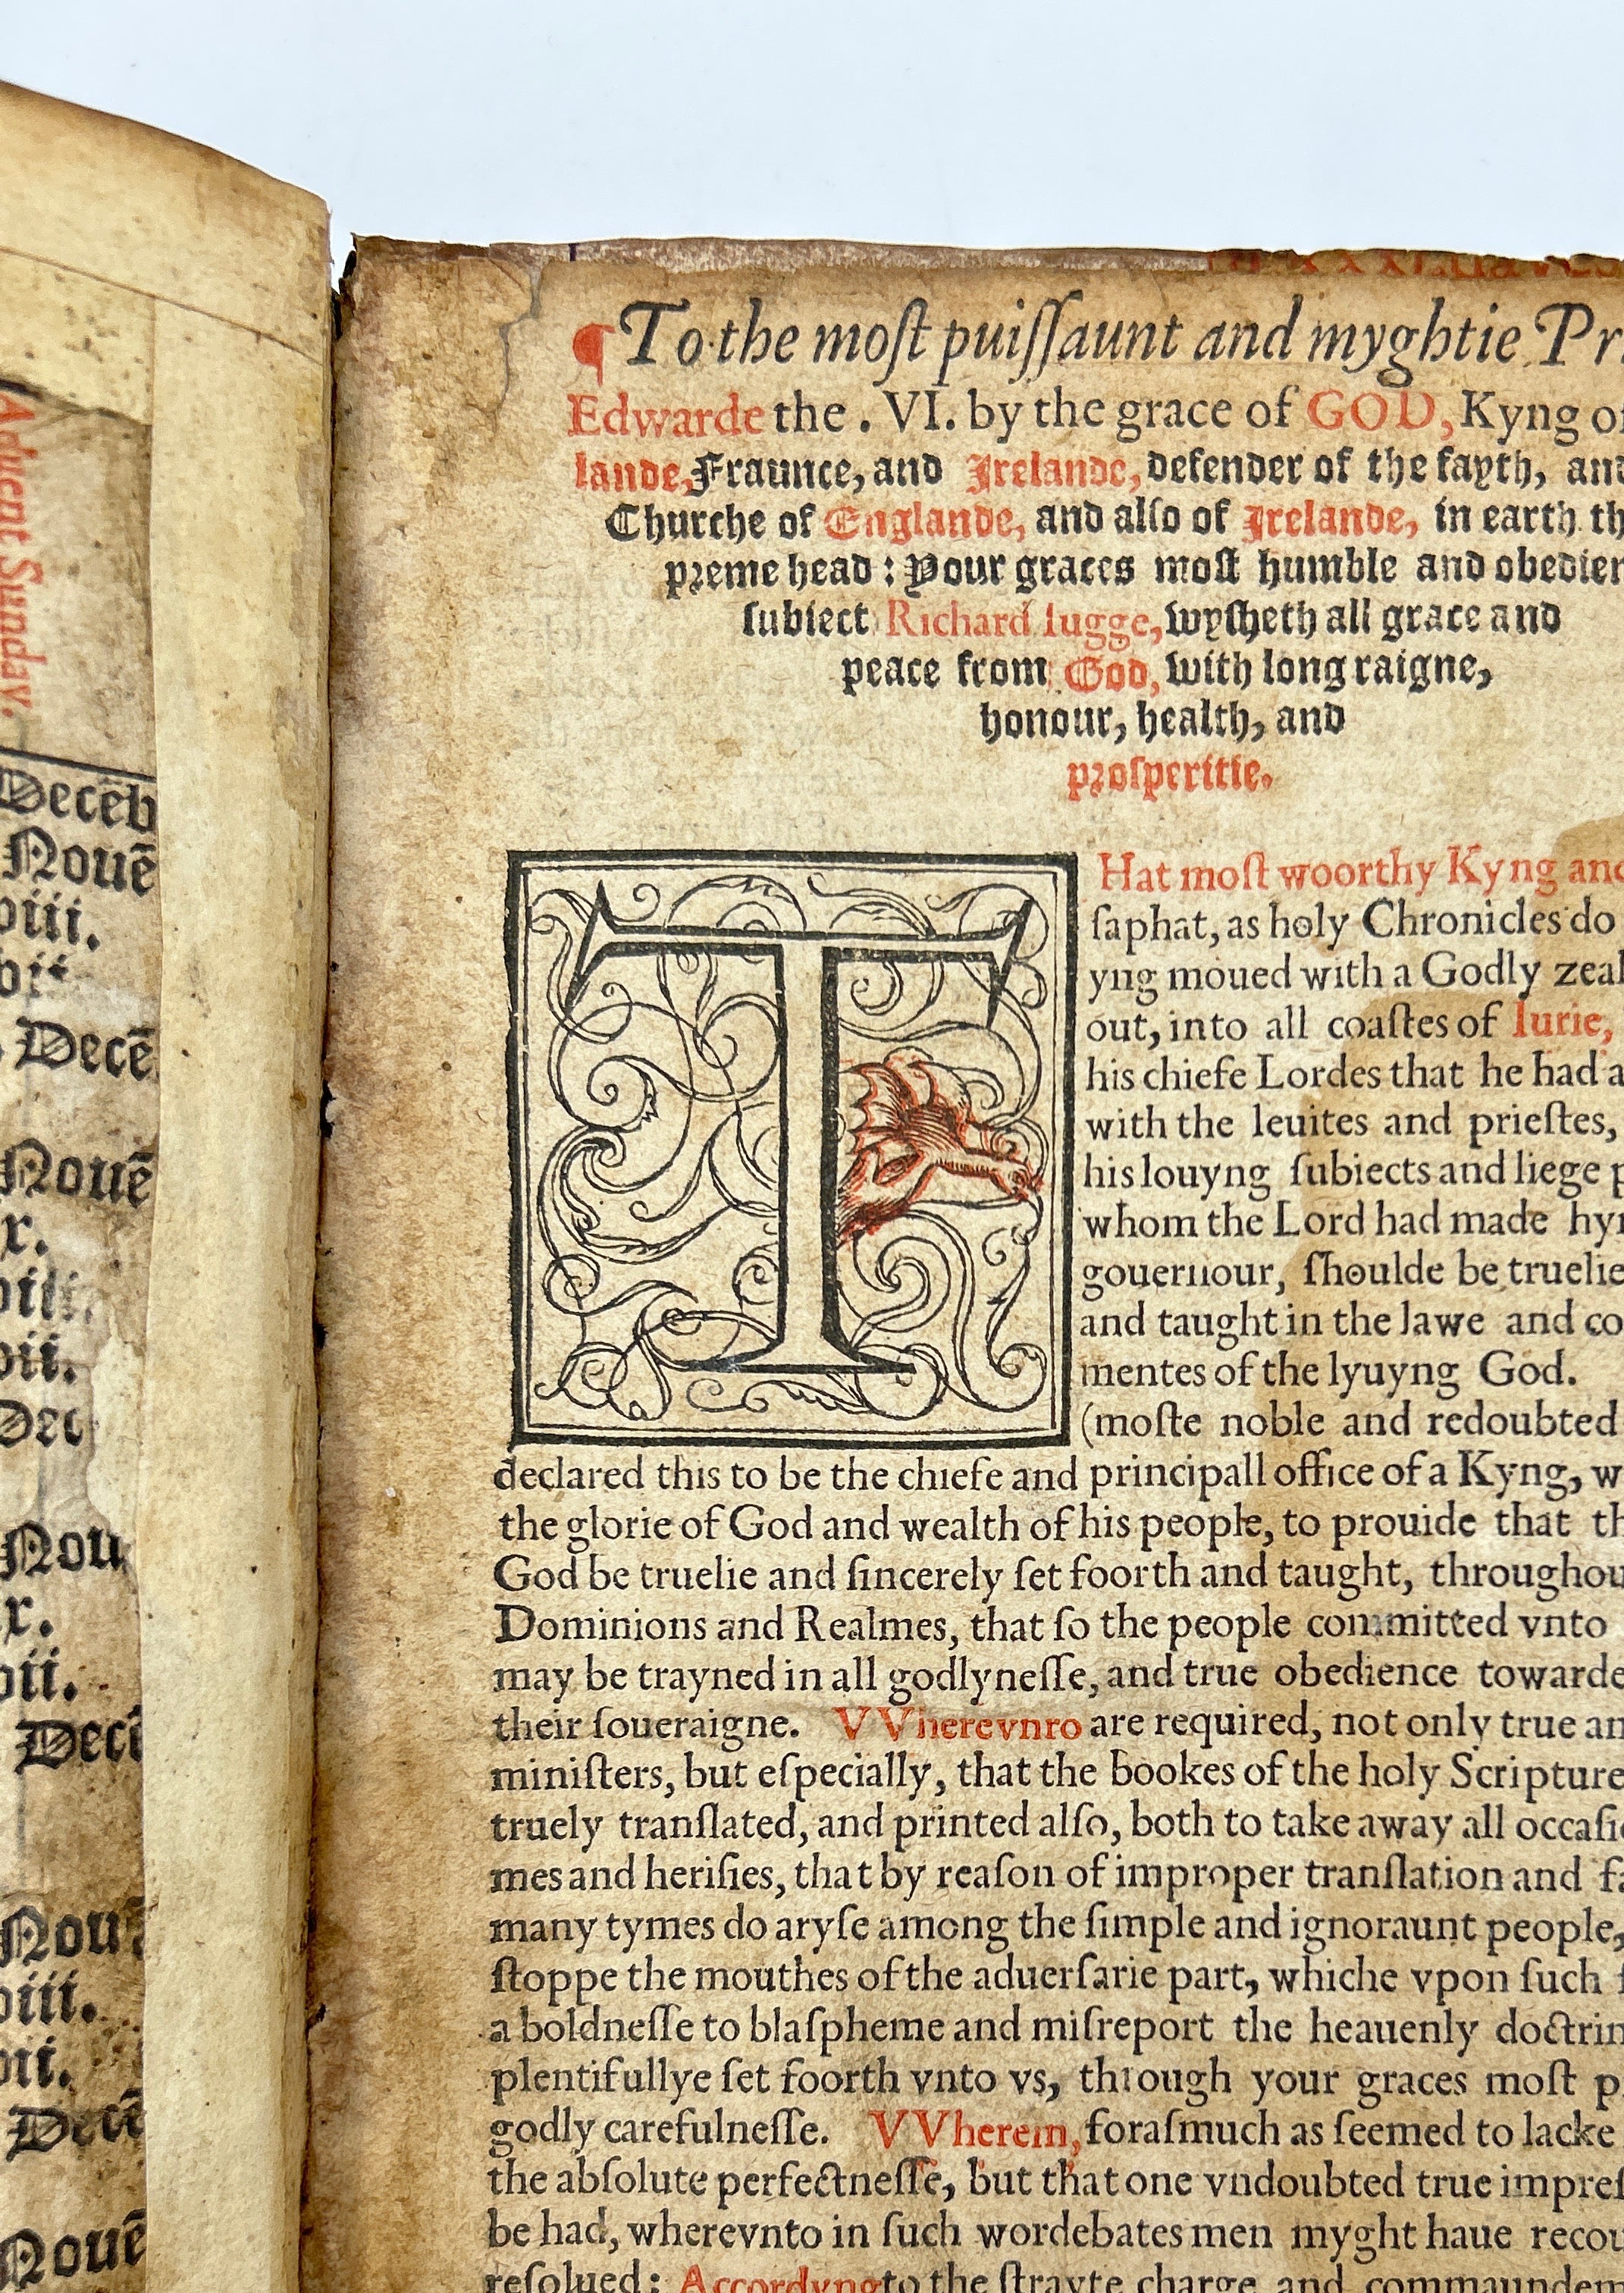 Aduent Sunday.
Decēb
Nouē
viii.
vii.
Decē
Nouē
x.
viii.
vii.
Nou
x.
vii.
Nouē
viii.
vii.
Decē
Nouē
¶ To the moſt puiſſaunt and myghtie Pr
Edwarde the . VI. by the grace of GOD, Kyng of
lande, Fraunce, and Irelande, defender of the fayth, and
Churche of Englande, and alſo of Irelande, in earth th
preme head: Your graces moſt humble and obedien
ſubiect Richard Iugge, wyſheth all grace and
peace from God, with long raigne,
honour, health, and
proſperitie.
THat moſt woorthy Kyng and
ſaphat, as holy Chronicles do
yng moued with a Godly zeal
out, into all coaſtes of Iurie,
his chiefe Lordes that he had a
with the leuites and prieſtes,
his louyng ſubiects and liege p
whom the Lord had made hym
gouernour, ſhoulde be truelie
and taught in the lawe and co
mentes of the lyuyng God.
(moſte noble and redoubted
declared this to be the chiefe and principall office of a Kyng, w
the glorie of God and wealth of his people, to prouide that th
God be truelie and ſincerely ſet foorth and taught, throughou
Dominions and Realmes, that ſo the people committed vnto
may be trayned in all godlyneſſe, and true obedience towarde
their ſoueraigne. VVherevnto are required, not only true an
miniſters, but eſpecially, that the bookes of the holy Scripture
truely tranſlated, and printed alſo, both to take away all occaſio
mes and heriſies, that by reaſon of improper tranſlation and fa
many tymes do aryſe among the ſimple and ignoraunt people,
ſtoppe the mouthes of the aduerſarie part, whiche vpon ſuch f
a boldneſſe to blaſpheme and miſreport the heauenly doctrin
plentifullye ſet foorth vnto vs, through your graces moſt p
godly carefulneſſe. VVherein, foraſmuch as ſeemed to lacke
the abſolute perfectneſſe, but that one vndoubted true impreſ
be had, wherevnto in ſuch wordebates men myght haue recou
reſolued: Accordyng to the ſtrayte charge and commaundem